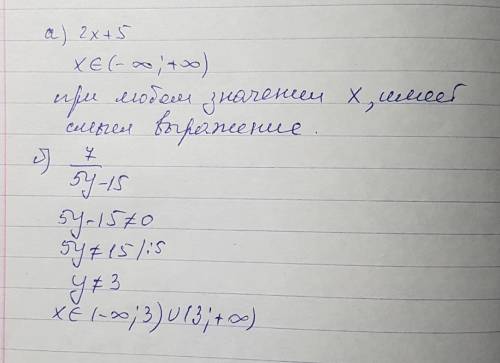 а) 2x+5
x∈(-∞;+∞)
при любом значении x, имеет
смысл выражение.
б) 7/(5y-15)
5y-15≠0
5y≠15 |:5
y≠3
x∈(-∞;3)∪(3;+∞)